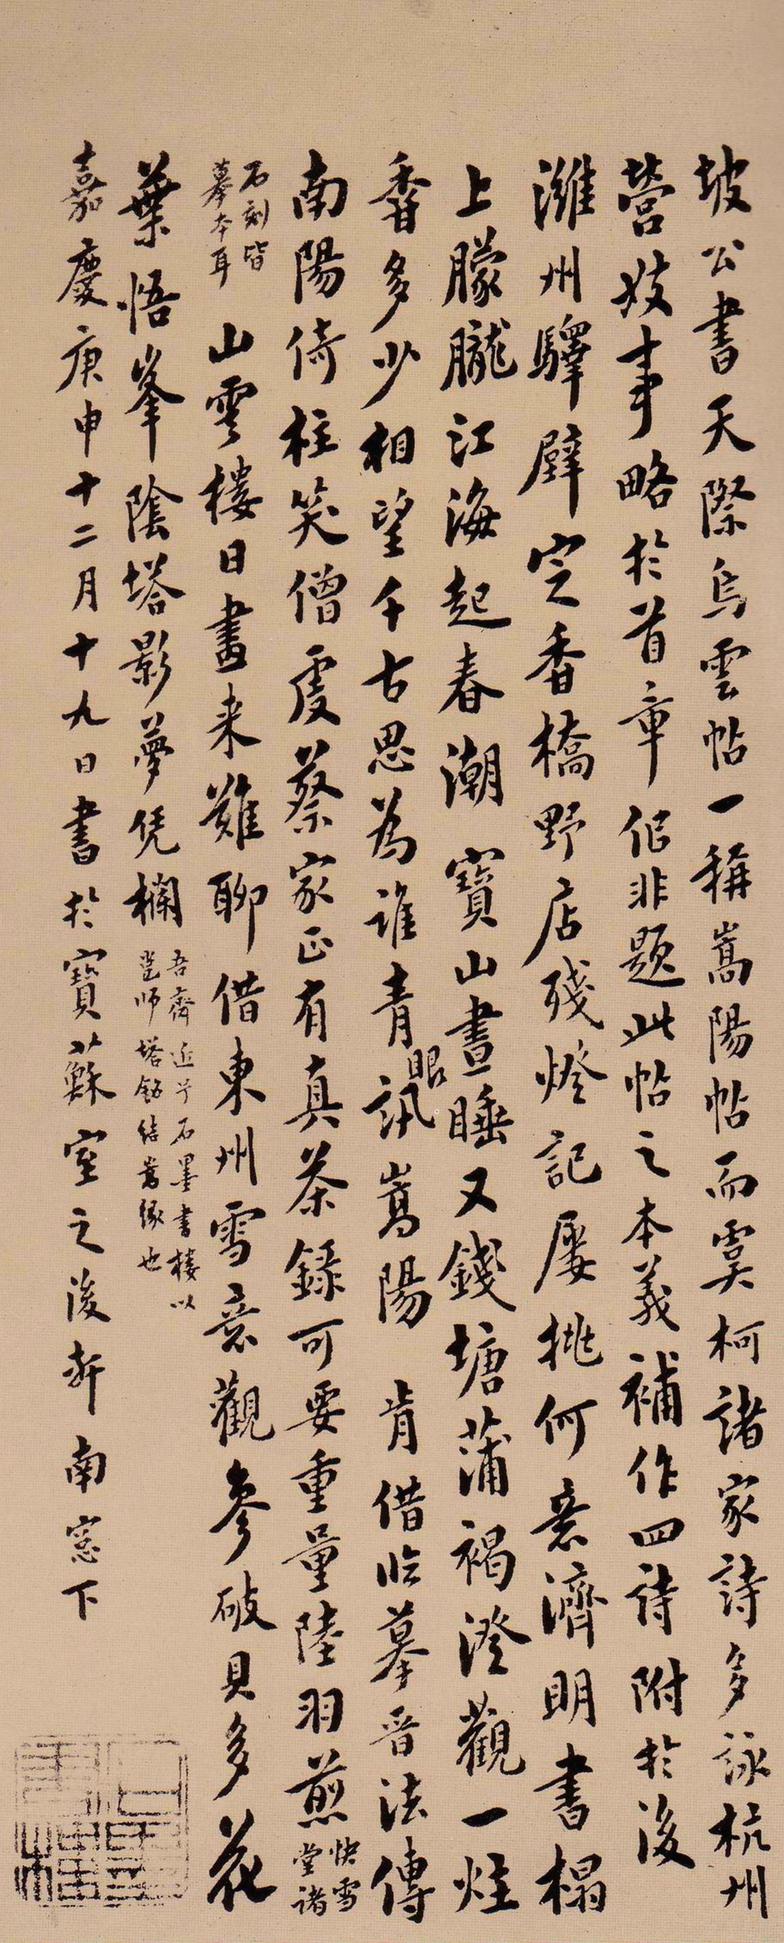 坡公書天際烏雲帖一稱嵩陽帖而虞柯諸家詩多詠杭州
營妓事略於首章似非題此帖之本義補作四詩附於後
濰州驛壁定香橋野店殘燈記屢挑何意濟明書榻
上朦朧江海起春潮 寶山晝睡又錢塘蒲褐澄觀一炷
香多少相望千古思為誰青眼訊嵩陽 肯借臨摹晉法傳
南陽倚柱笑僧虔蔡家正有真茶錄可要重量陸羽煎
快雪
堂諸
石刻皆
摹本耳
山雲樓日畫來難聊借東州雪意觀參破貝多花
葉悟峯陰塔影夢凭欄
吾齋近于石墨書樓以
邕師塔銘結嵩緣也
嘉慶庚申十二月十九日書於寶蘇室之後軒南窗下